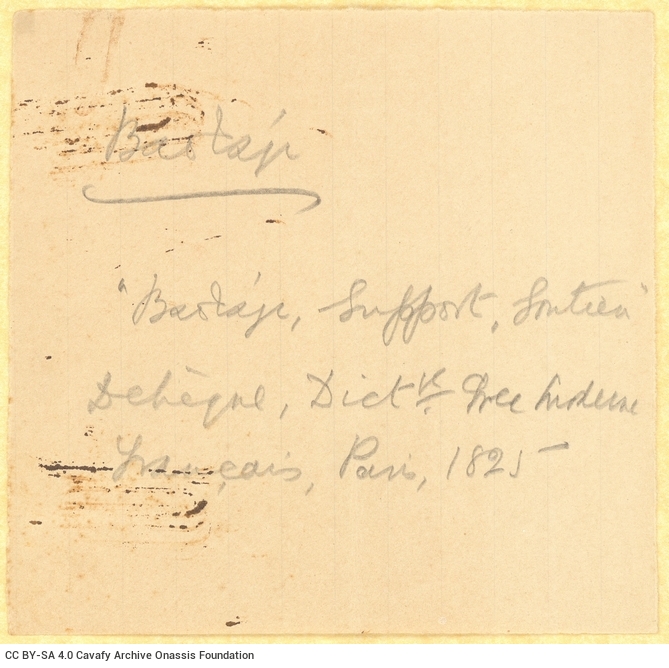 Βαστάγι
"Βαστάγι, Support, Soutien"
Dehèque, Dictre Grec Moderne
Français, Paris, 1825
CC BY-SA 4.0 Cavafy Archive Onassis Foundation